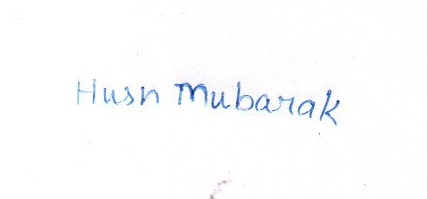 Husn Mubarak